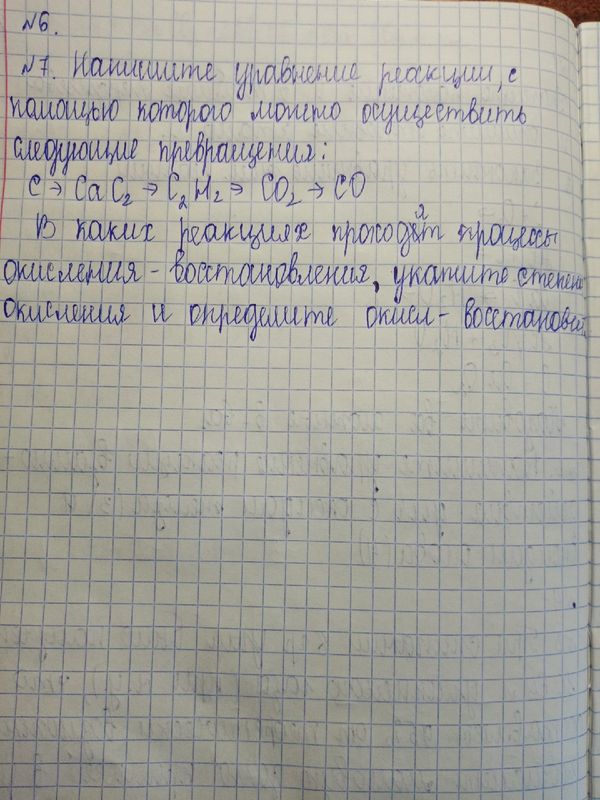 №6.
№7. Напишите уравнение реакции, с
помощью которого можно осуществить
следующие превращения:
C → CaC₂ → C₂H₂ → CO₂ → CO
В каких реакциях проходят процессы
окисления - восстановления, укажите степень
окисления и определите окисл - восстановит.